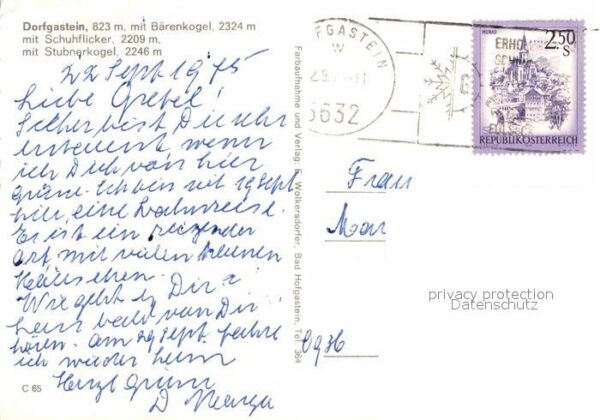 Dorfgastein, 823 m, mit Bärenkogel, 2324 m
mit Schuhflicker, 2209 m,
mit Stubnerkogel, 2246 m
22 Sept 1975
Liebe Gretel!
Sicher bist Du sehr
erstaunt wenn
ich Dich von hier
grüße. Ich bin seit 19 Sept
hier, eine Bahnreise.
Es ist ein reizender
Ort mit vielen kleinen
Häuschen.
Wie geht es Dir?
bald von Dir
hören. Am 29 Sept. fahre
ich wieder heim
Herzl Grüsse
D
C 65
Farbaufnahme und Verlag: E. Wolkersdorfer, Bad Hofgastein, Tel. 364
FGASTEIN
5632
ERHOL
MURAU
2.50 S
REPUBLIK ÖSTERREICH
Frau
Mar
privacy protection
Datenschutz